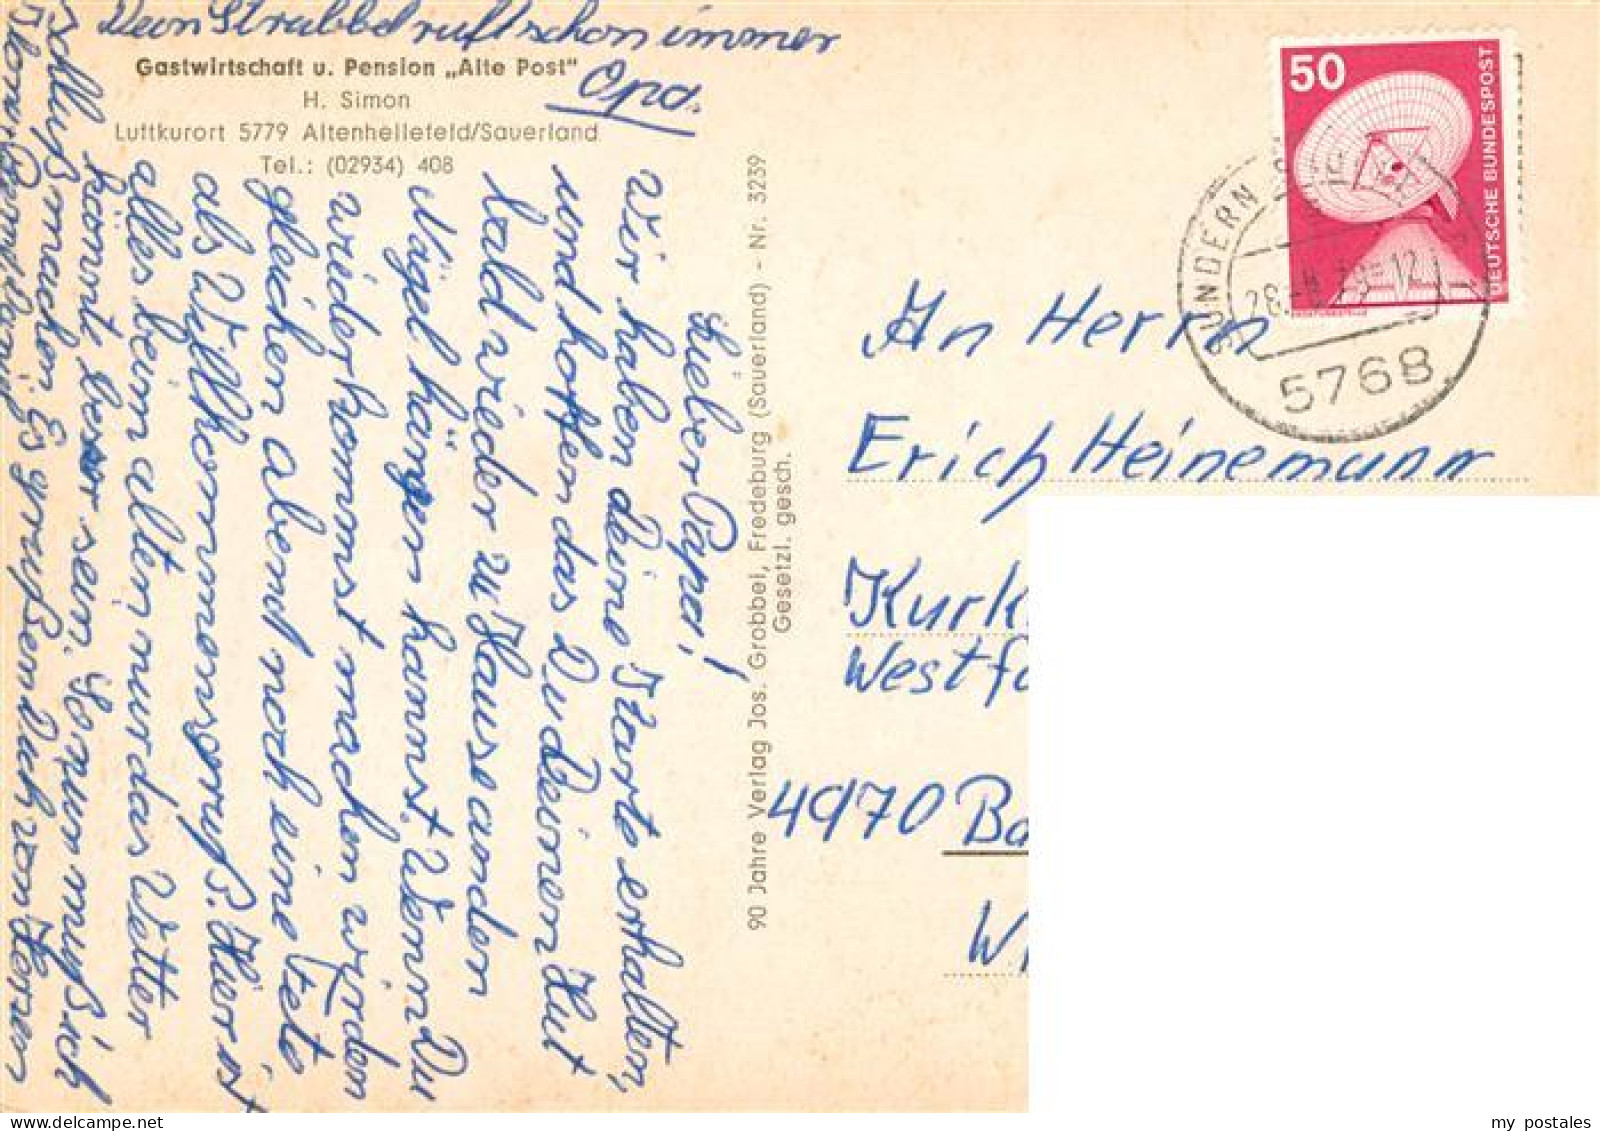 Dein Strubbel ruft schon immer
Opa.
Gastwirtschaft u. Pension „Alte Post"
H. Simon
Luftkurort 5779 Altenhellefeld/Sauerland
Tel.: (02934) 408
Lieber Papa!
Wir haben Deine Karte erhalten,
und hoffen das Du Deinen Hut
bald wieder zu Hause an den
Nägel hängen kannst. Wenn Du
wiederkommst machen wir den
gleichen abend noch eine Fete
als Willkommensgruß. Hier ist
alles beim alten nur das Wetter
könnte besser sein. So nun muß ich
Schluß machen. Es grüßen Dich von Herzen
90 Jahre Verlag Jos. Grobbel, Fredeburg (Sauerland) - Nr. 3239
Gesetzl. gesch.
50
DEUTSCHE BUNDESPOST
SUNDERN
5768
An Herrn
Erich Heinemann
Kurk
Westfa
4970 Ba
W
my postales